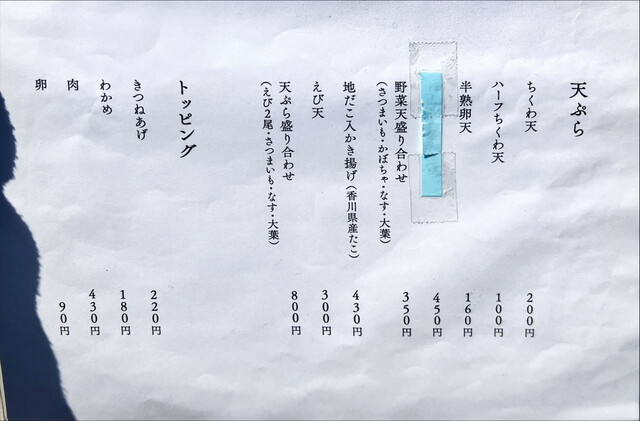 天ぷら
ちくわ天 200円
ハーフちくわ天 100円
半熟卵天 160円
450円
野菜天盛り合わせ 350円
(さつまいも・かぼちゃ・なす・大葉)
地だこ入かき揚げ(香川県産たこ) 430円
えび天 300円
天ぷら盛り合わせ 800円
(えび2尾・さつまいも・なす・大葉)
トッピング
きつねあげ 220円
わかめ 180円
肉 430円
卵 90円